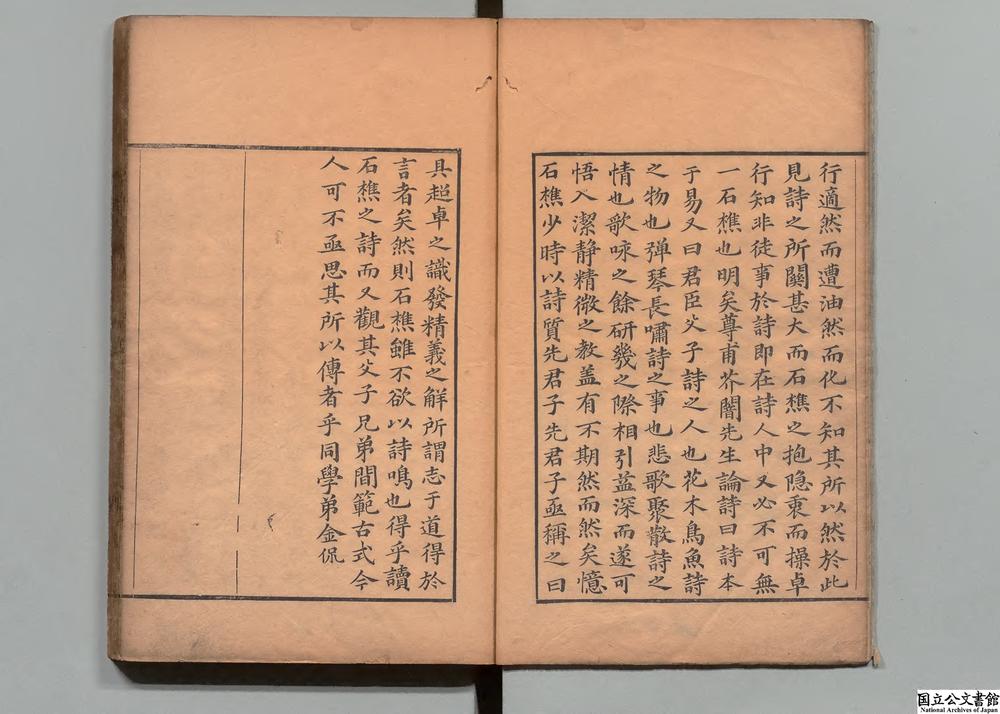 行適然而遭油然而化不知其所以然於此
見詩之所關甚大而石樵之抱隐衷而操卓
行知非徒事於詩即在詩人中又必不可無
一石樵也明矣尊甫芥闇先生論詩曰詩本
于易又曰君臣父子詩之人也花木鳥魚詩
之物也弹琴長嘯詩之事也悲歌聚散詩之
情也歌咏之餘研幾之際相引益深而遂可
悟入潔静精微之教盖有不期然而然矣憶
石樵少時以詩質先君子先君子亟稱之曰
具超卓之識發精義之解所謂志于道得於
言者矣然則石樵雖不欲以詩鳴也得乎讀
石樵之詩而又觀其父子兄弟間範古式今
人可不亟思其所以傳者乎同學弟金侃
国立公文書館
National Archives of Japan